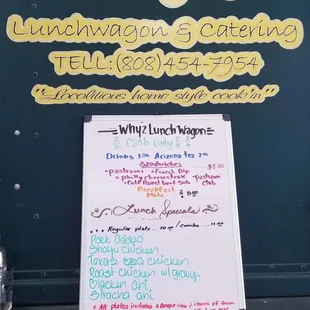 Lunchwagon & Catering
TELL:(808)454-7954
"Locolitious home style cook'in"
Whyz Lunch Wagon
Cash Only
Drinks 1.00 Arizona tea 2.00
Sandwiches $8.00
pastrami French Dip
philly cheesesteak pastrami
Cold Roast beef Sub Club
Breakfast
Plate
Lunch Specials
Regular plate... / combo...
Pork Adobo
Shoyu chicken
Texas BBQ chicken
Roast chicken w/ gravy
Blacken ahi
Siracha ahi
All plates includes 2 scoops rice & choice of